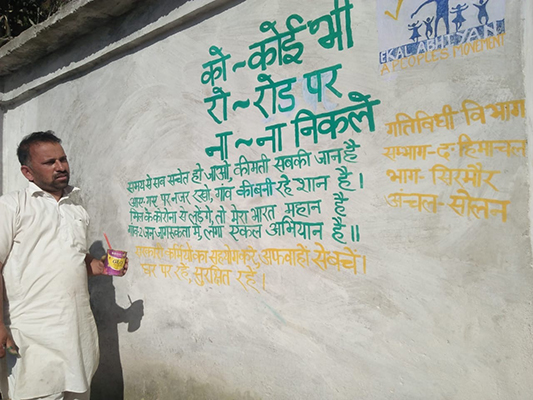 को ~ कोई भी
रो ~ रोड पर
ना ~ ना निकले
EKAL ABHIYAN
A PEOPLE'S MOVEMENT
गतिविधी-विभाग
सम्भाग-द-हिमाचल
भाग-सिरमौर
अंचल-सोलन
समय से सब सचेत हो जाओ, कीमती सबकी जान है
आस-पास पर नजर रखो, गांव की बनी रहे शान है।
मिल के कोरोना से लड़ेगे, तो मेरा भारत महान है
जागरुकता में लगा एकल अभियान है॥
कर्मियों का सहयोग करें, अफवाहों से बचें।
घर पर रहें, सुरक्षित रहें।